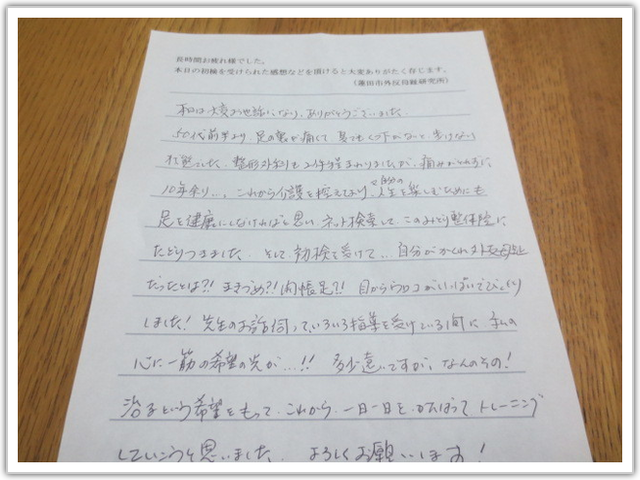 長時間お疲れ様でした。
本日の初検を受けられた感想などを頂けると大変ありがたく存じます。
(蓮田市外反母趾研究所)
本日は大変お世話になり、ありがとうございました。
50代前半より 足の裏が痛くて 家でもくつ下がないと歩けない
状態でした。整形外科も2件程まわりましたが、痛みがとれずに
10年余り…。これから介護を控えており、自分の人生を楽しむためにも
足を健康にしなければと思い ネット検索して、このみどり整体院に
たどりつきました。そして 初検を受けて… 自分がかくれ外反母趾
だったとは?! まきづめ?! 内張足?! 目からウロコがいっぱいでびっくり
しました! 先生のお話伺っていろいろ指導を受けている間に 私の
心に一筋の希望の光が…!! 多少遠いですが、なんのその!
治るという希望をもって、これから、一日一日を、がんばって トレーニング
していこうと思いました。 よろしくお願いします!